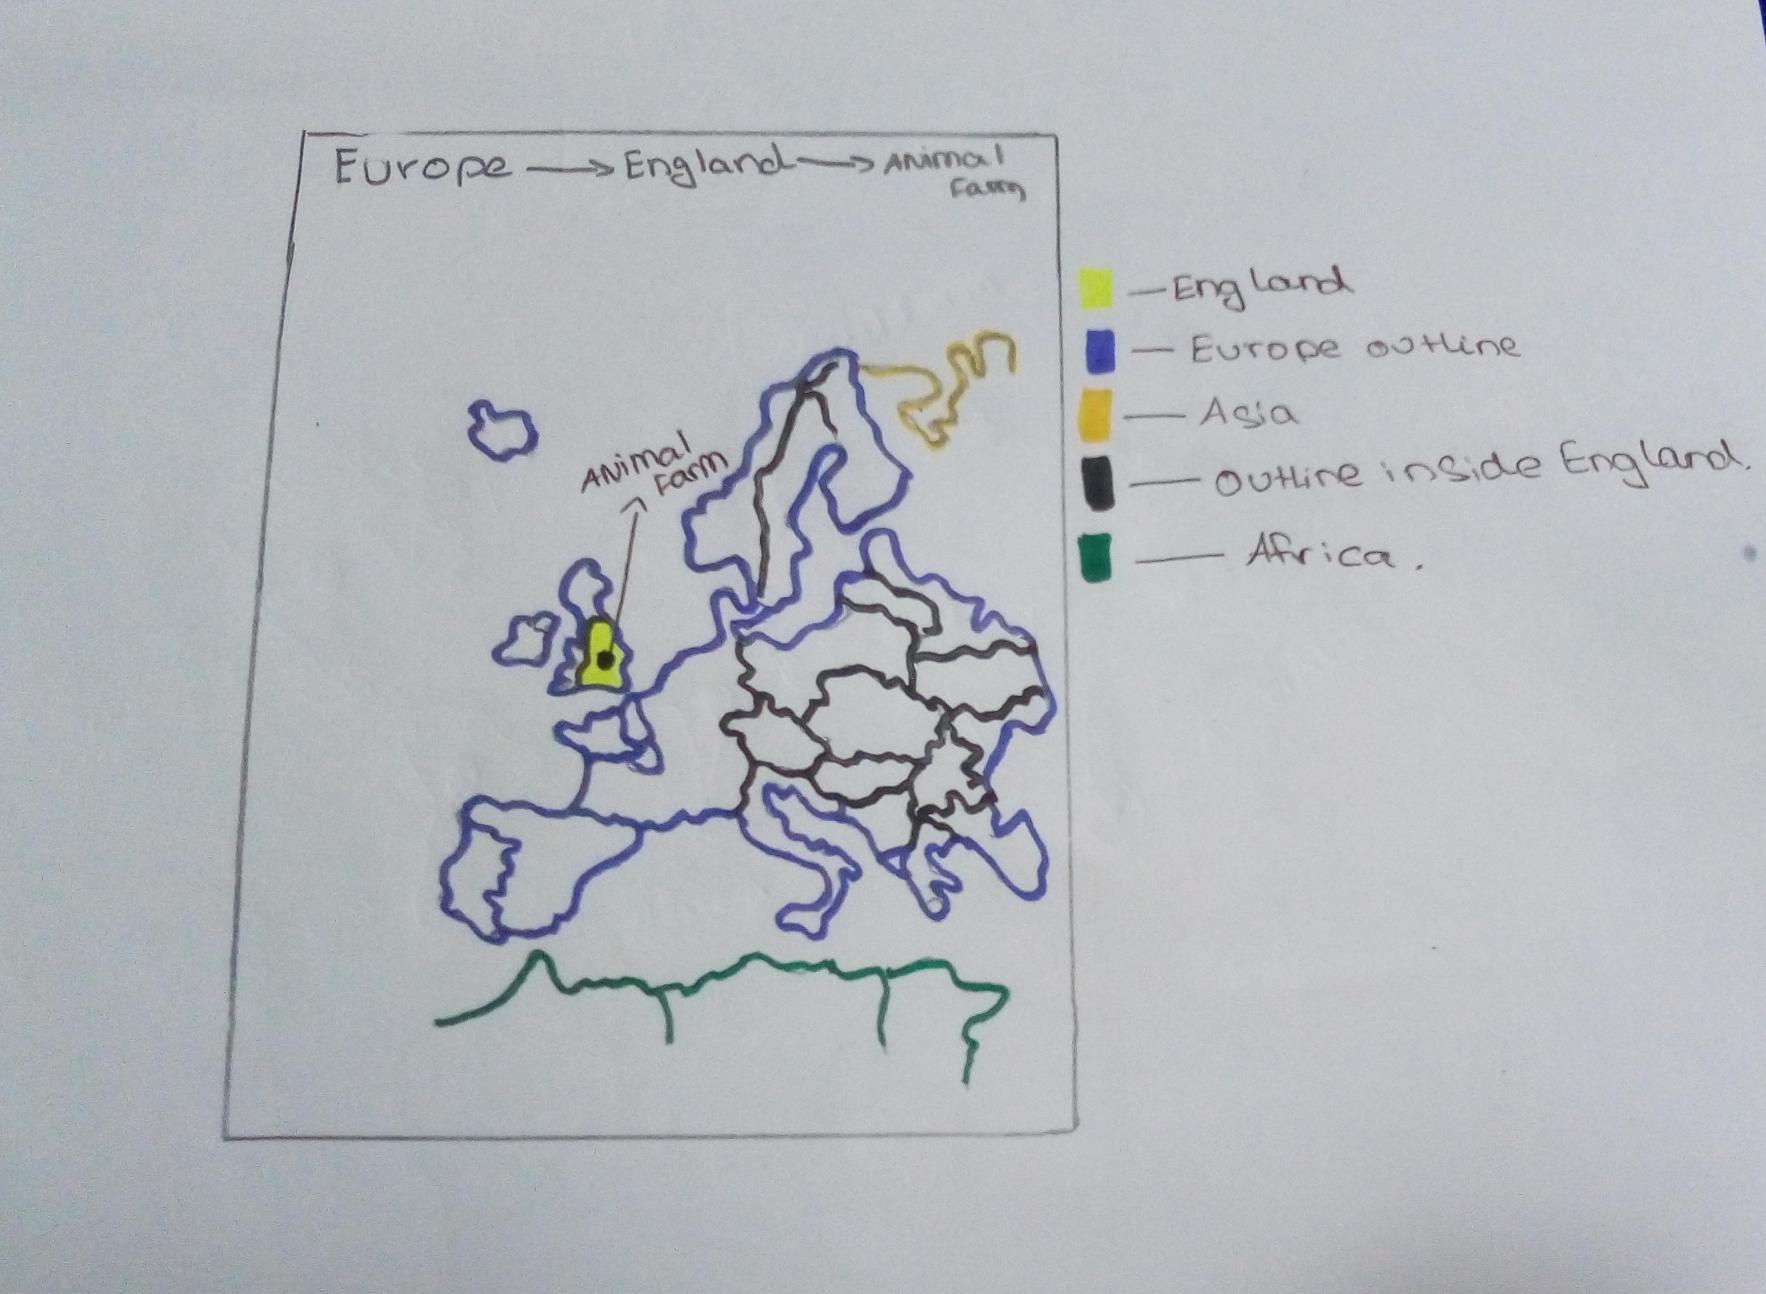 Europe → England → Animal
Farm
Animal
Farm
— England
— Europe outline
— Asia
— Outline inside England.
— Africa.